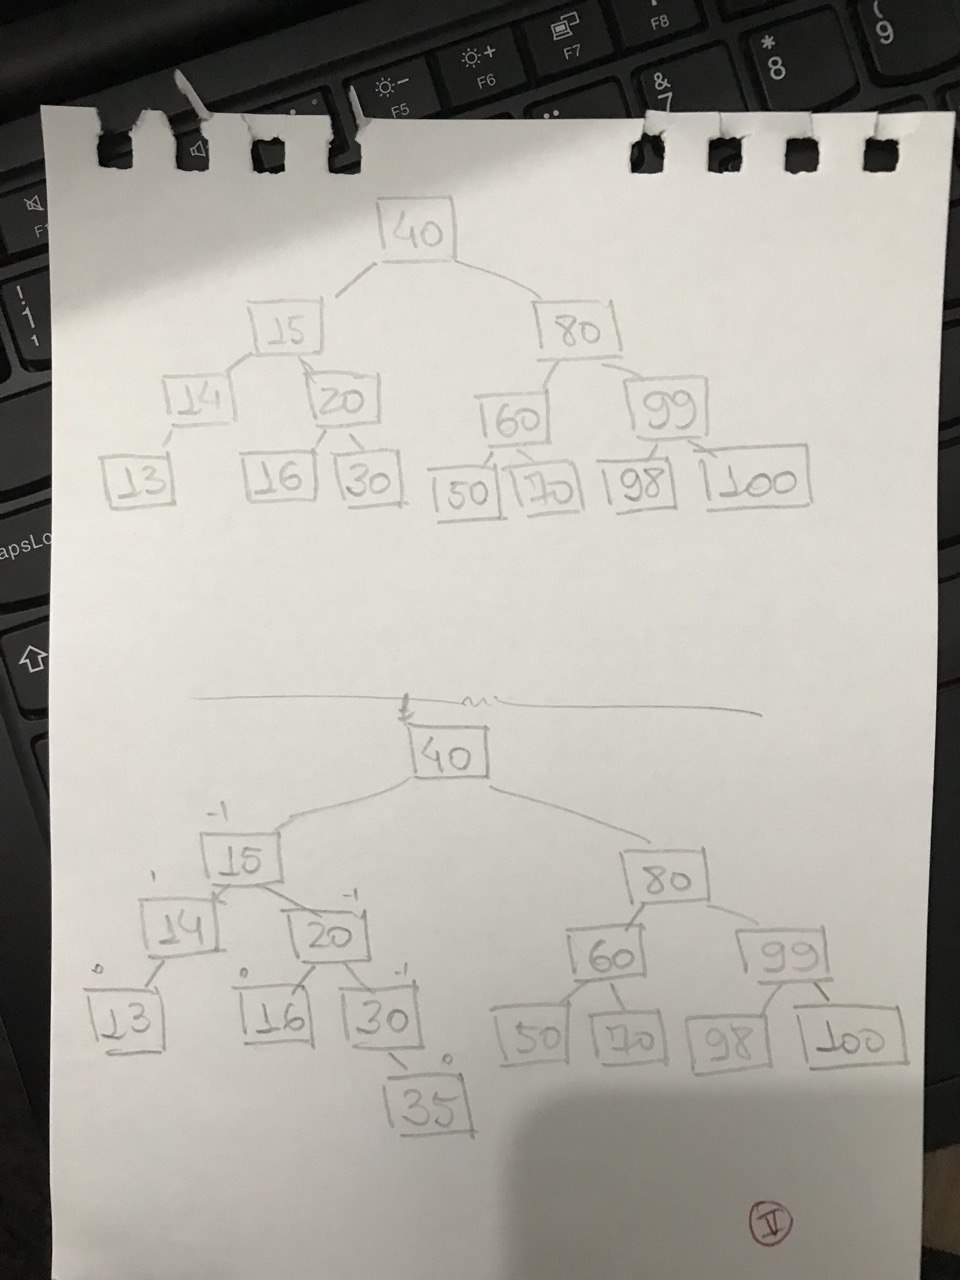 F5 F6 F7 F8
& 7 * 8 ( 9
F1
! 1 1
apsLo
40
15 80
14 20 60 99
13 16 30 50 70 98 100
40
-1
15 80
1 -1
14 20 60 99
0 0 -1
13 16 30 50 70 98 100
0
35
V